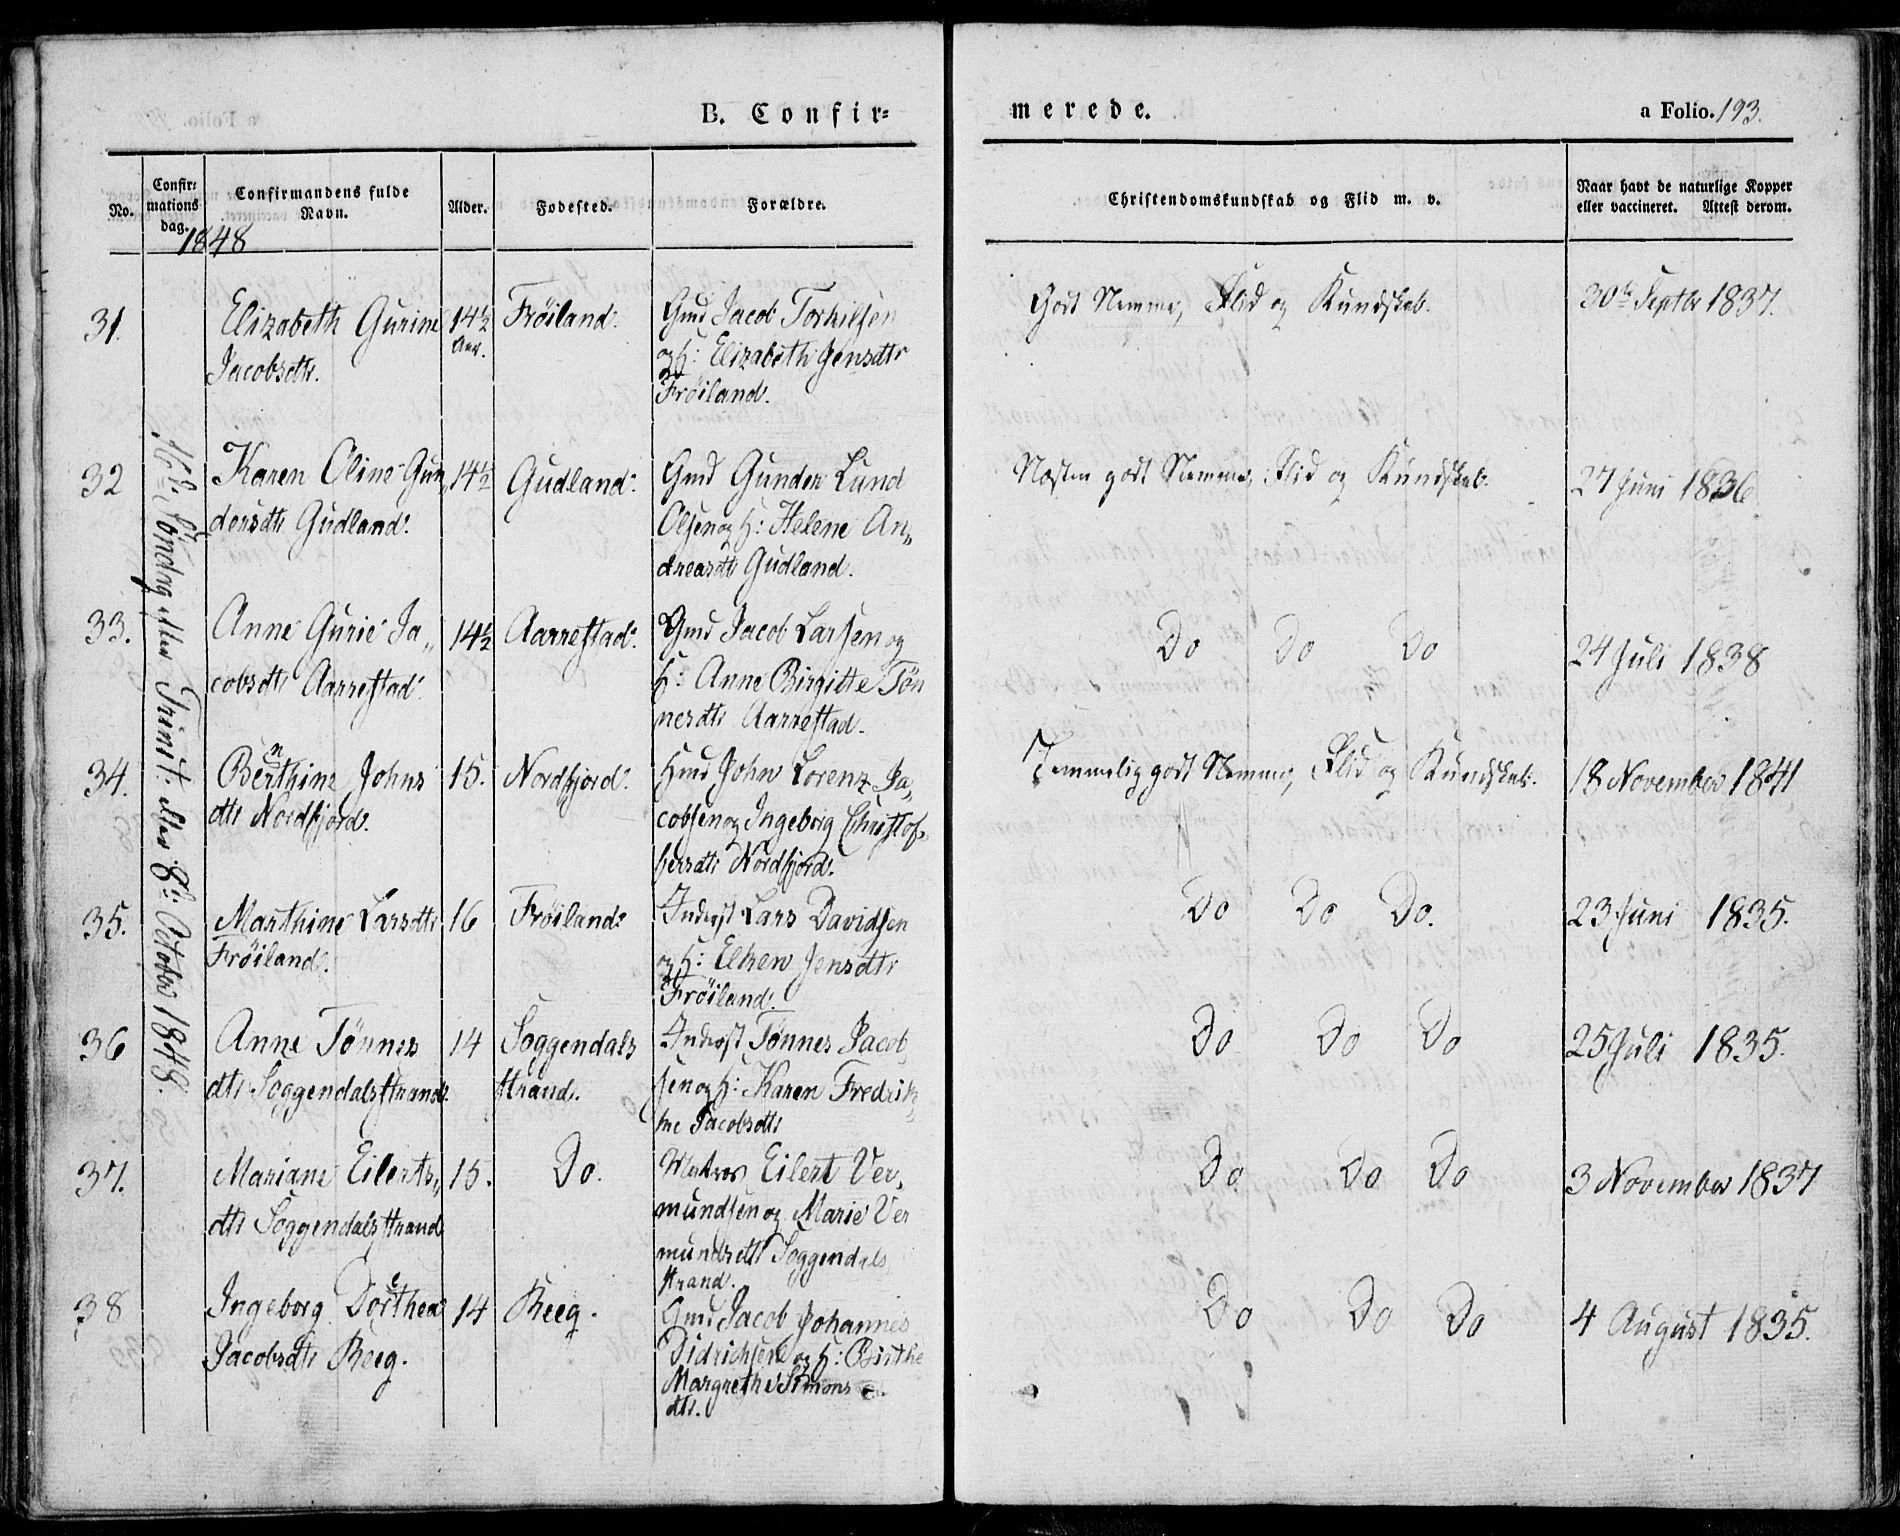 B. Confir=
merede.
a Folio. 193.
No.
Confir=
mations
dag.
Confirmandens fulde
Navn.
Alder.
Fødested.
Forældre.
Christendomskundskab og Flid m. v.
Naar havt de naturlige Kopper
eller vaccineret. Attest derom.
1848
16de Söndag efter Trinit: den 8de October 1848.
31.
Elizabeth Gurine
Jacobsdtr.
14½
Aar.
Fröiland.
Gmd Jacob Torkilsen
og H: Elizabeth Jensdtr
Fröiland.
Godt Nemme, Flid og Kundskab.
30te Septbr 1837.
32
Karen Oline Gun
dersdtr Gudland.
14½
Gudland.
Gmd Gunder Lund
Olsen og H: Helene An„
dreasdtr Gudland.
Næsten godt Nemme, Flid og Kundskab.
27 Juni 1836.
33.
Anne Gurie Ja„
cobsdtr Aarrestad.
14½
Aarrestad.
Gmd Jacob Larsen og
H: Anne Birgitte Tön
nesdtr Aarrestad.
Do Do Do
24 Juli 1838
34.
Bernthine Johns
dtr Nordfjord.
15.
Nordfjord.
Hmd John Lorenz Ja„
cobsen og Ingeborg Christof„
fersdtr Nordfjord.
Temmelig godt Nemme, Flid og Kundskab.
18 November 1841
35.
Marthine Larsdtr
Fröiland.
16
Fröiland.
Inderst Lars Davidsen
og H: Elken Jensdtr
Fröiland.
Do Do Do.
23 Juni 1835.
36
Anne Tönnes
dtr Soggendalsstrand.
14
Soggendals
strand.
Inderst Tönnes Jacob
sen og H: Karen Fredrik„
ke Jacobsdtr
Do Do Do
25 Juli 1835.
37.
Mariane Eilerts„
dtr Soggendalsstrand
15.
Do.
Matros Eilert Ver„
mundsen og Marie Ver
mundsdtr Soggendals
strand.
Do Do Do
3 November 1837
38
Ingeborg Dorthea
Jacobsdtr Reeg.
14
Reeg.
Gmd Jacob Johannes
Didrichsen og H: Birthe
Margrethe Simons
dtr.
Do Do Do
4 August 1835.